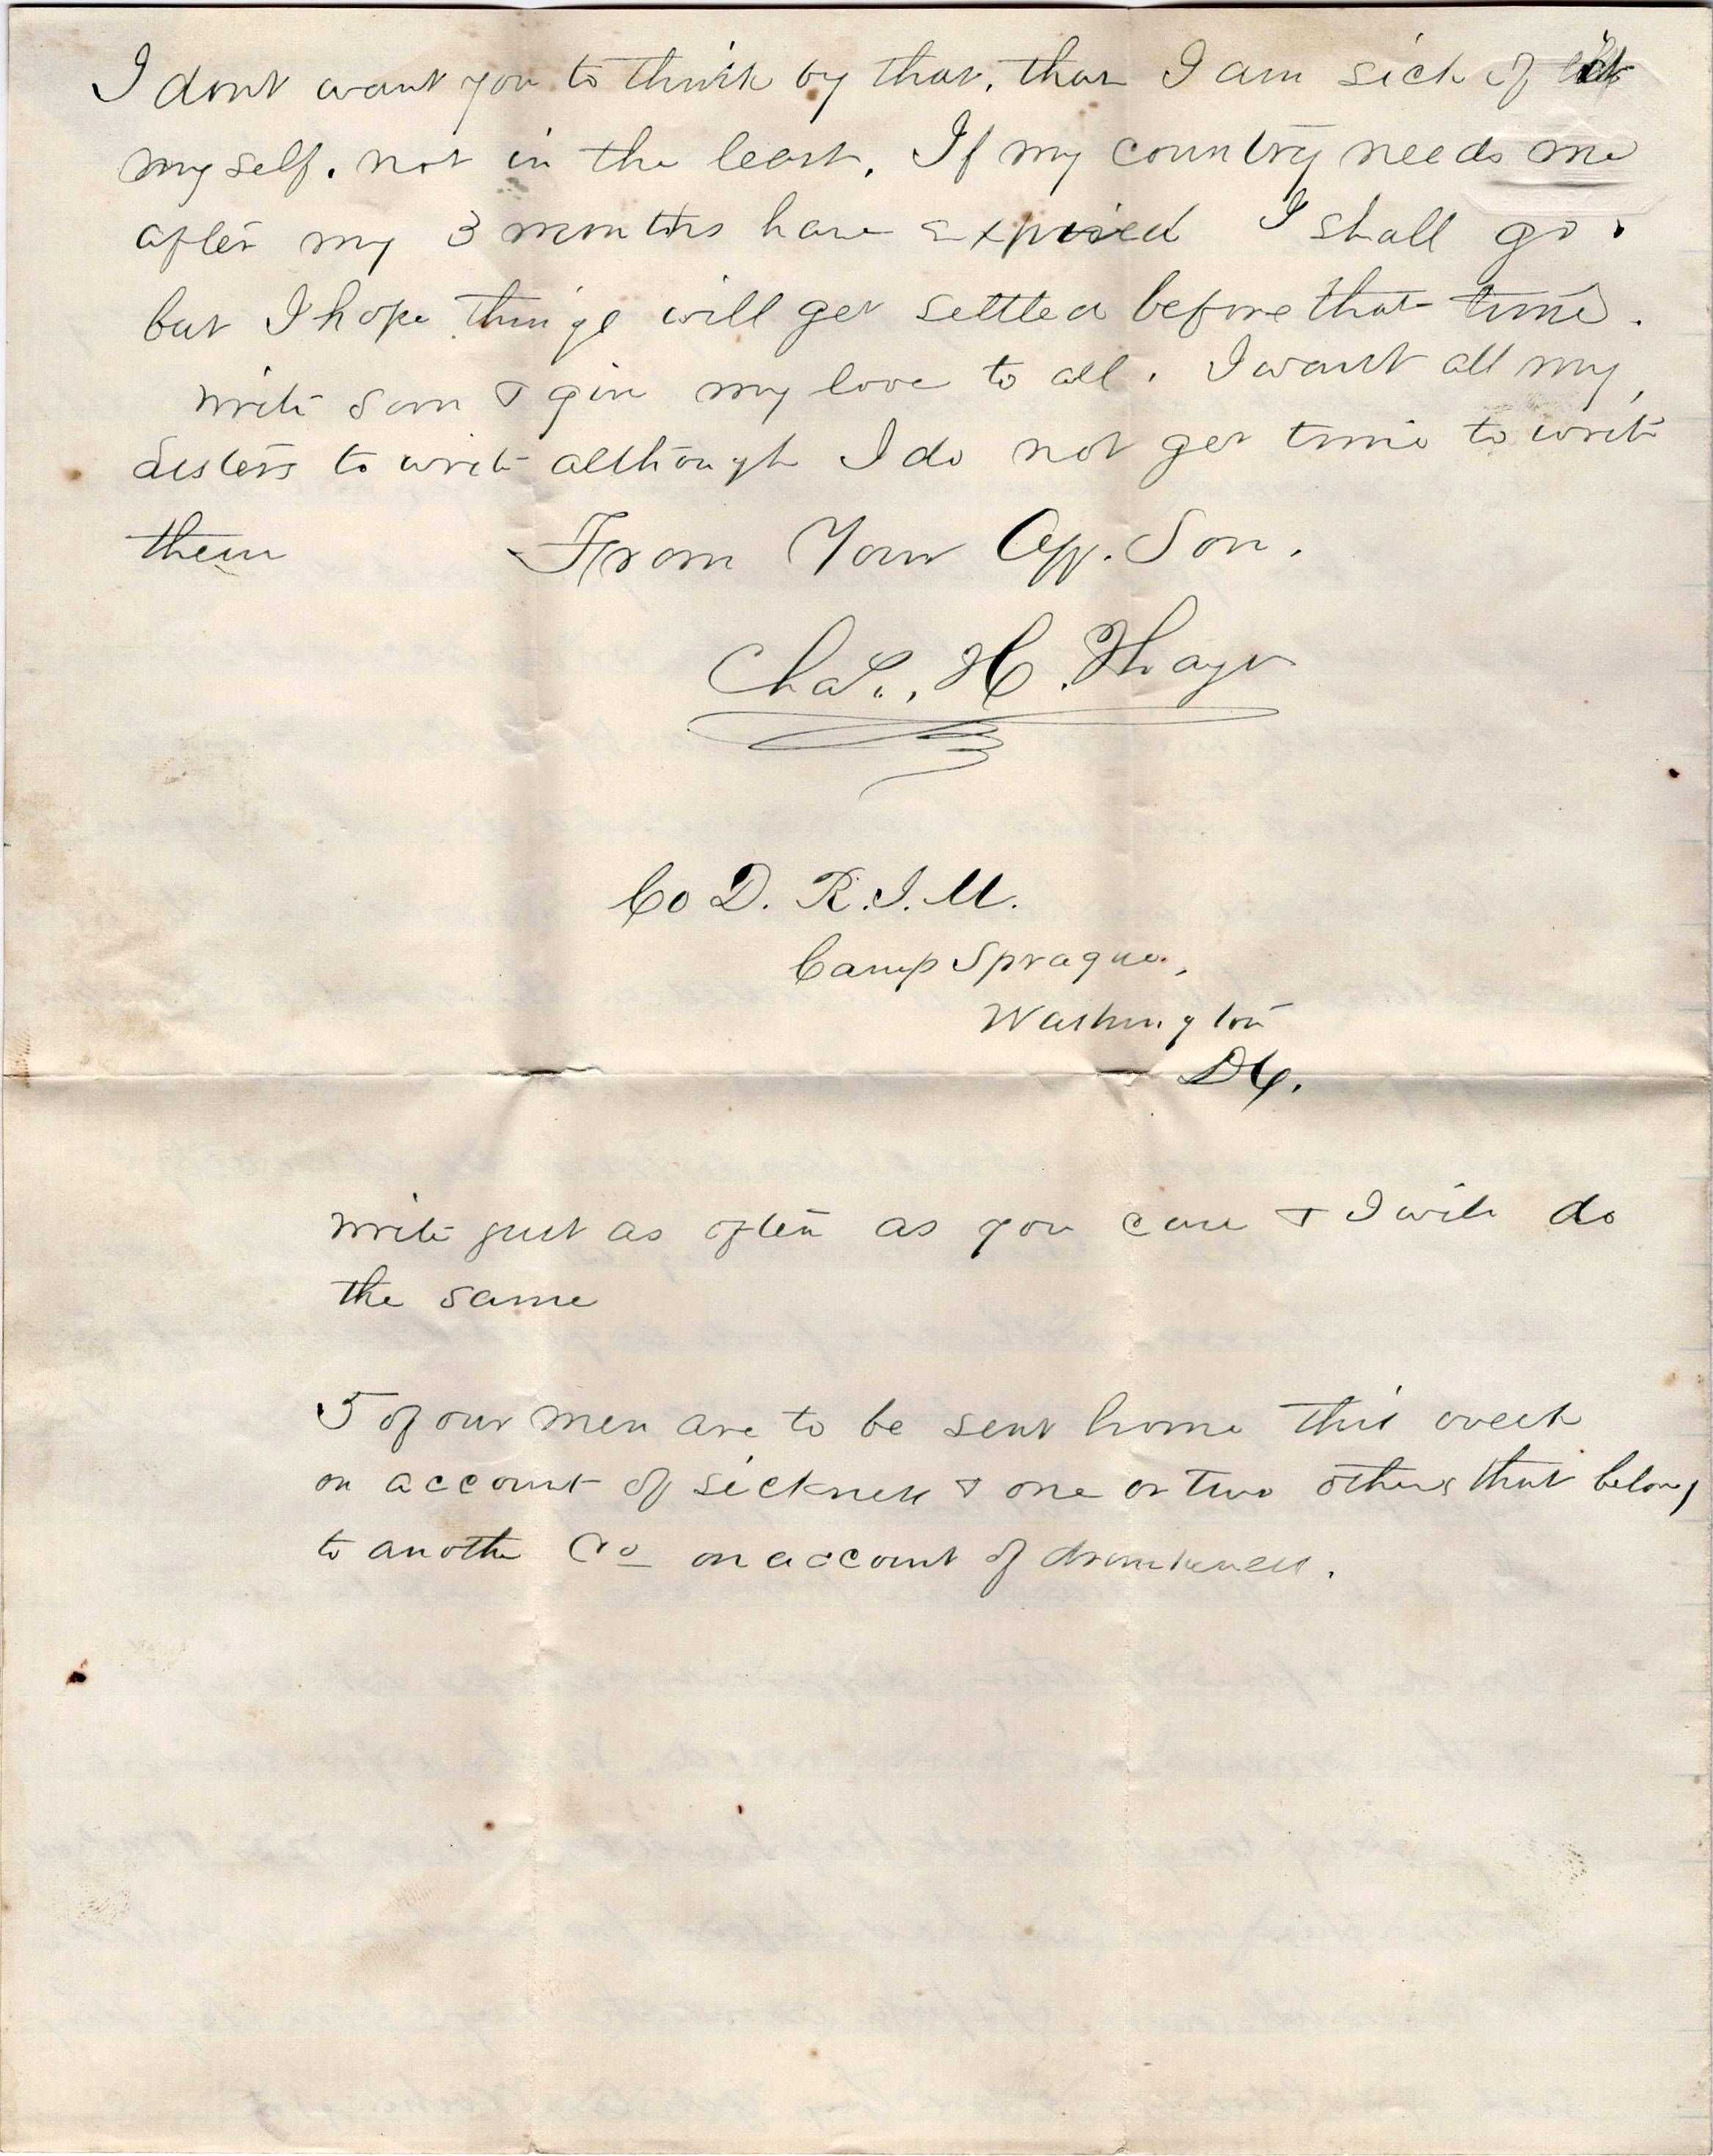 I dont want you to think by that, that I am sick of it
myself. not in the least. If my country needs me
after my 3 months have expired I shall go.
but I hope things will get settled before that time.
Write soon & give my love to all. I want all my
Sisters to write although I do not get time to write
them From Your Aff. Son.
Chas. H. Thayer
Co D. R.I.M.
Camp Sprague,
Washington
DC.
Write just as often as you can & I will do
the same
5 of our men are to be sent home this week
on account of sickness & one or two others that belong
to another Co on account of drunkenness.